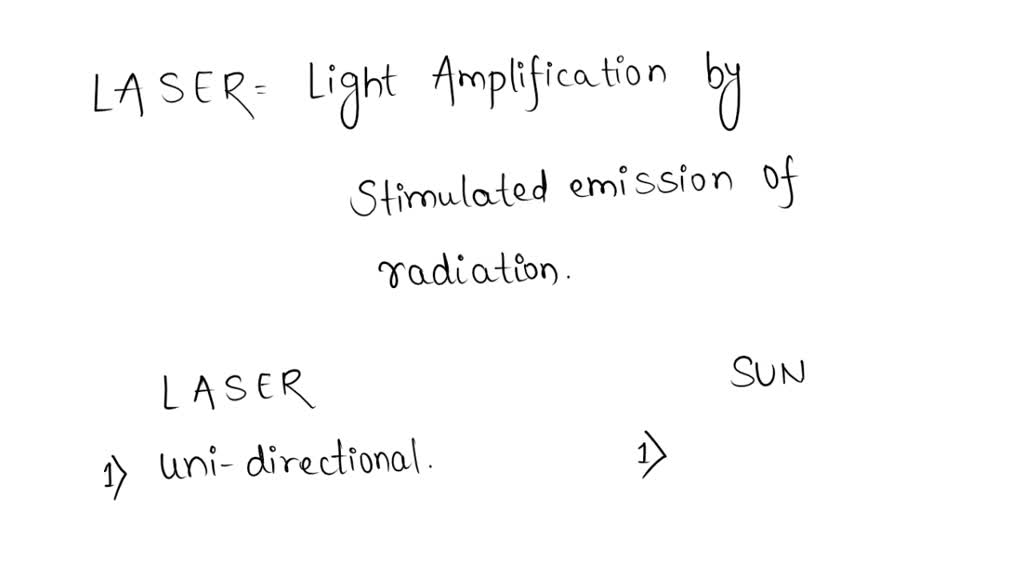 LASER= Light Amplification by
Stimulated emission of
radiation.
LASER SUN
1) uni-directional. 1)